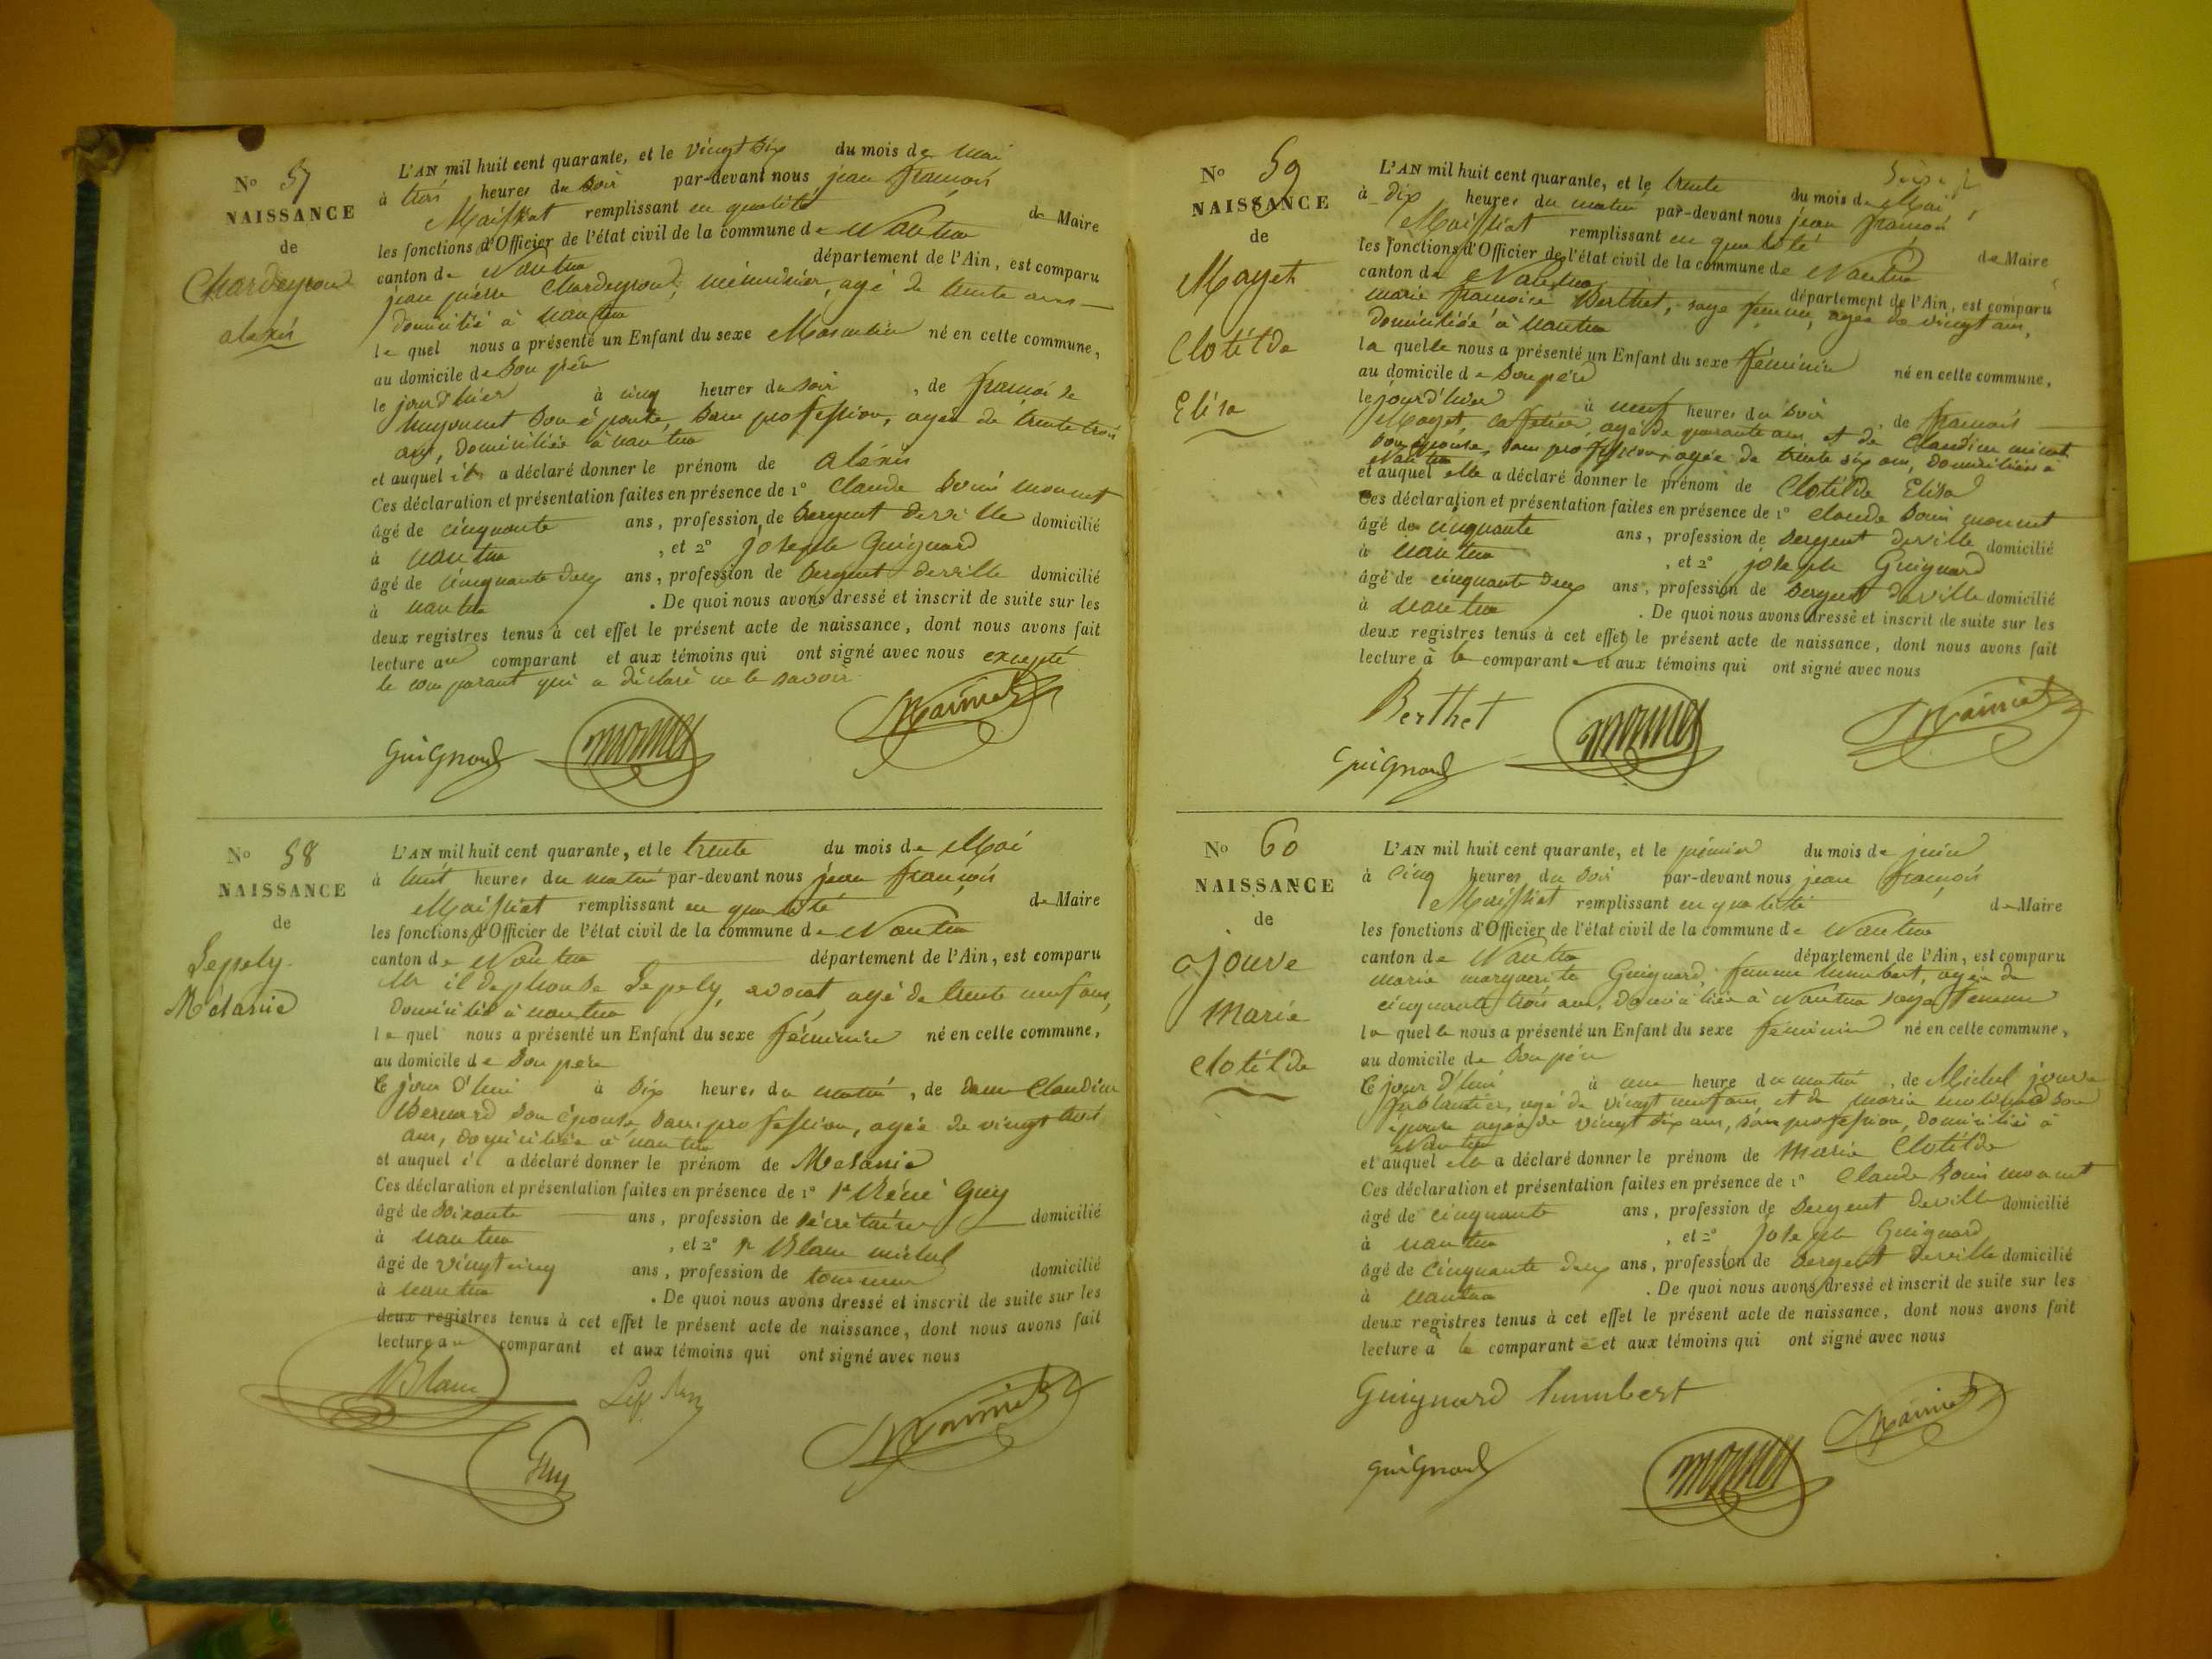 N° 57
NAISSANCE
de
Chardeyron
alexis
L'AN mil huit cent quarante, et le vingt six du mois de Mai
à trois heures du soir par-devant nous jean françois
Maissiat remplissant en qualité de Maire
les fonctions d'Officier de l'état civil de la commune de Nantua
canton de Nantua département de l'Ain, est comparu
jean pierre Chardeyron, menuisier, agé de trente ans
domicilié à nantua
le quel nous a présenté un Enfant du sexe Masculin né en cette commune,
au domicile de Son père
le jour d'hier à cinq heures du soir, de
Son épouse, Sans profession, agée de trente trois
ans, Domiciliée à nantua
et auquel il a déclaré donner le prénom de alexis
Ces déclaration et présentation faites en présence de 1° Claude Louis monnet
âgé de cinquante ans, profession de Sergent deville domicilié
à nantua, et 2° joseph Guignard
âgé de cinquante deux ans, profession de Sergent deville domicilié
à nantua. De quoi nous avons dressé et inscrit de suite sur les
deux registres tenus à cet effet le présent acte de naissance, dont nous avons fait
lecture au comparant et aux témoins qui ont signé avec nous excepté
le comparant qui a déclaré ne le savoir
Guignard monnet Maissiat
N° 58
NAISSANCE
de
Lepely
Mélanie
L'AN mil huit cent quarante, et le trente du mois de Mai
à huit heures du matin par-devant nous jean françois
Maissiat remplissant en qualité de Maire
les fonctions d'Officier de l'état civil de la commune de Nantua
canton de Nantua département de l'Ain, est comparu
Mr ildephonse Lepely, avocat agé de trente neuf ans,
domicilié à nantua
le quel nous a présenté un Enfant du sexe féminin né en cette commune,
au domicile de Son père
le jour d'hui à Dix heures du matin, de dame Claudine
Bernard Son épouse, Sans profession, agée de vingt trois
ans, domiciliée à nantua
et auquel il a déclaré donner le prénom de Melanie
Ces déclaration et présentation faites en présence de 1° Guy
âgé de Soixante ans, profession de Sécrétaire domicilié
à nantua, et 2° Blanc michel
âgé de vingt cinq ans, profession de tourneur domicilié
à nantua. De quoi nous avons dressé et inscrit de suite sur les
deux registres tenus à cet effet le présent acte de naissance, dont nous avons fait
lecture au comparant et aux témoins qui ont signé avec nous
Blanc Lepely Maissiat
Guy
N° 59
NAISSANCE
de
Mayet
Clotilde
Elisa
L'AN mil huit cent quarante, et le trente du mois de Mai
à Dix heures du matin par-devant nous jean françois
Maissiat remplissant en qualité de Maire
les fonctions d'Officier de l'état civil de la commune de Nantua
canton de Nantua département de l'Ain, est comparu
marie françoise Berthet, sage femme, agée de vingt ans,
domiciliée à nantua
la quelle nous a présenté un Enfant du sexe féminin né en cette commune,
au domicile de Son père
le jour d'hier à neuf heures du Soir, de françois
Mayet, caffetier, agé de quarante ans et de Claudine
Son épouse, Sans profession, agée de trente six ans, domiciliés à
Nantua
et auquel elle a déclaré donner le prénom de Clotilde Elisa
Ces déclaration et présentation faites en présence de 1° Claude Louis monnet
âgé de cinquante ans, profession de Sergent deville domicilié
à nantua, et 2° joseph Guignard
âgé de cinquante deux ans, profession de Sergent deville domicilié
à nantua. De quoi nous avons dressé et inscrit de suite sur les
deux registres tenus à cet effet le présent acte de naissance, dont nous avons fait
lecture à la comparante et aux témoins qui ont signé avec nous
Berthet monnet Maissiat
Guignard
N° 60
NAISSANCE
de
Jouve
Marie
Clotilde
L'AN mil huit cent quarante, et le premier du mois de juin
à Cinq heures du Soir par-devant nous jean françois
Maissiat remplissant en qualité de Maire
les fonctions d'Officier de l'état civil de la commune de Nantua
canton de Nantua département de l'Ain, est comparu
marie marguerite Guignard, femme humbert, agée de
cinquante trois ans, Domiciliée à Nantua sage femme
la quelle nous a présenté un Enfant du sexe féminin né en cette commune,
au domicile de Son père
le jour d'hui à une heure du matin, de Michel jouve
ferblantier, agé de vingt neuf ans et de marie Son
épouse agée de vingt six ans, sans profession, Domiciliés à
Nantua
et auquel elle a déclaré donner le prénom de Marie Clotilde
Ces déclaration et présentation faites en présence de 1° Claude Louis monnet
âgé de cinquante ans, profession de Sergent deville domicilié
à nantua, et 2° joseph Guignard
âgé de Cinquante deux ans, profession de Sergent deville domicilié
à nantua. De quoi nous avons dressé et inscrit de suite sur les
deux registres tenus à cet effet le présent acte de naissance, dont nous avons fait
lecture à la comparante et aux témoins qui ont signé avec nous
Guignard humbert Maissiat
Guignard monnet